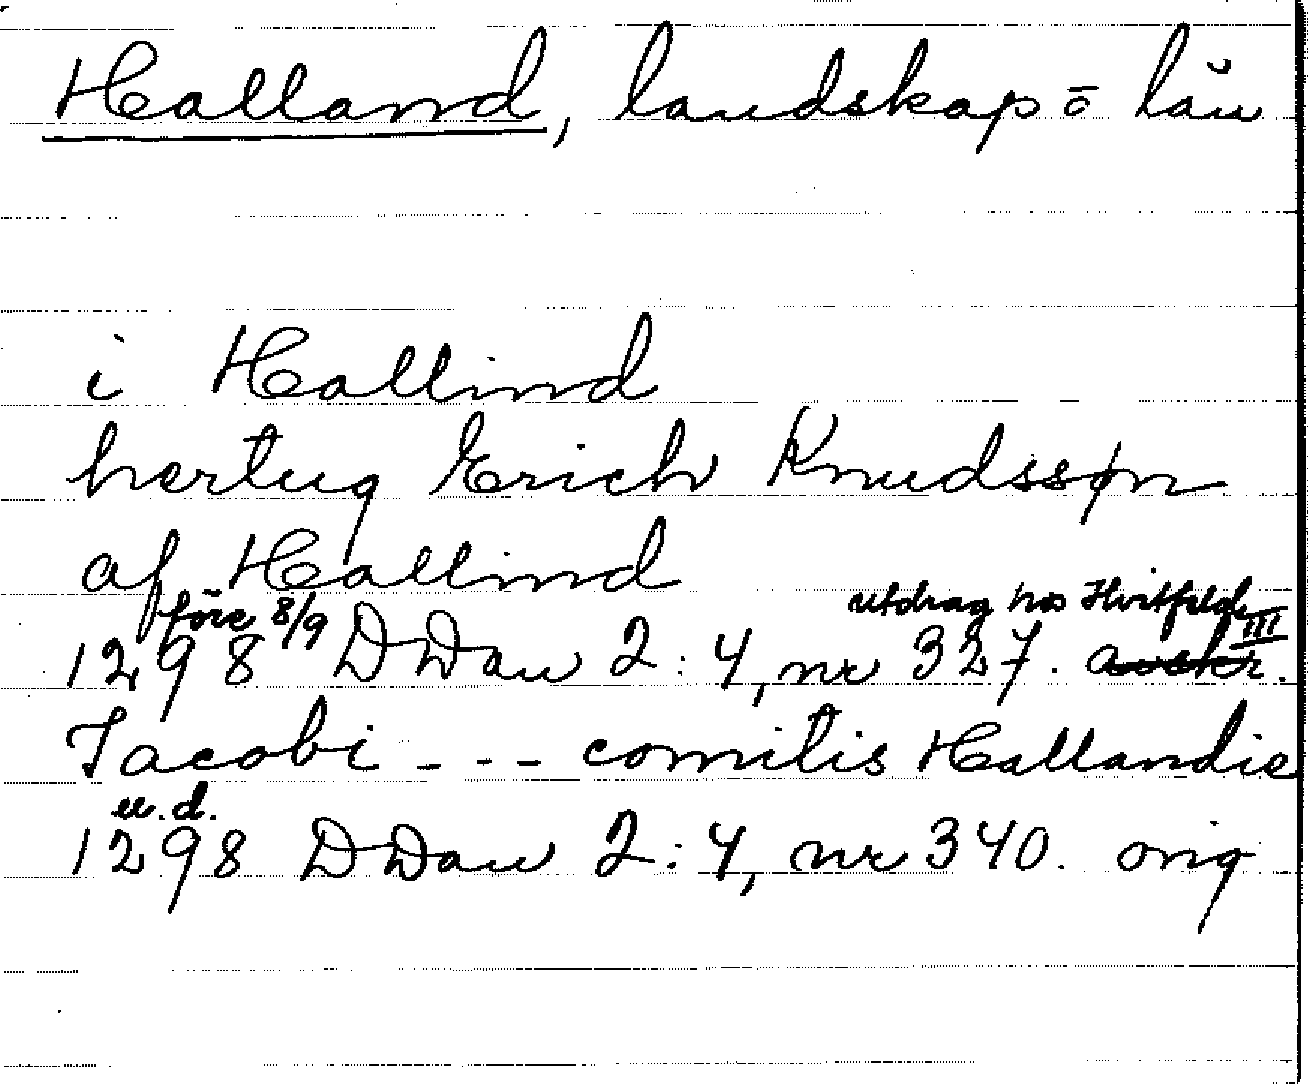 Halland, landskap ō län
i Hallind
hertug Erich Knudssøn
af Hallind
före 8/9 utdrag hos Hvitfeld III
1298 DDan 2:4, nr 327. avskr.
Jacobi --- comitis Hallandie
u.d.
1298 DDan 2:4, nr 340. orig